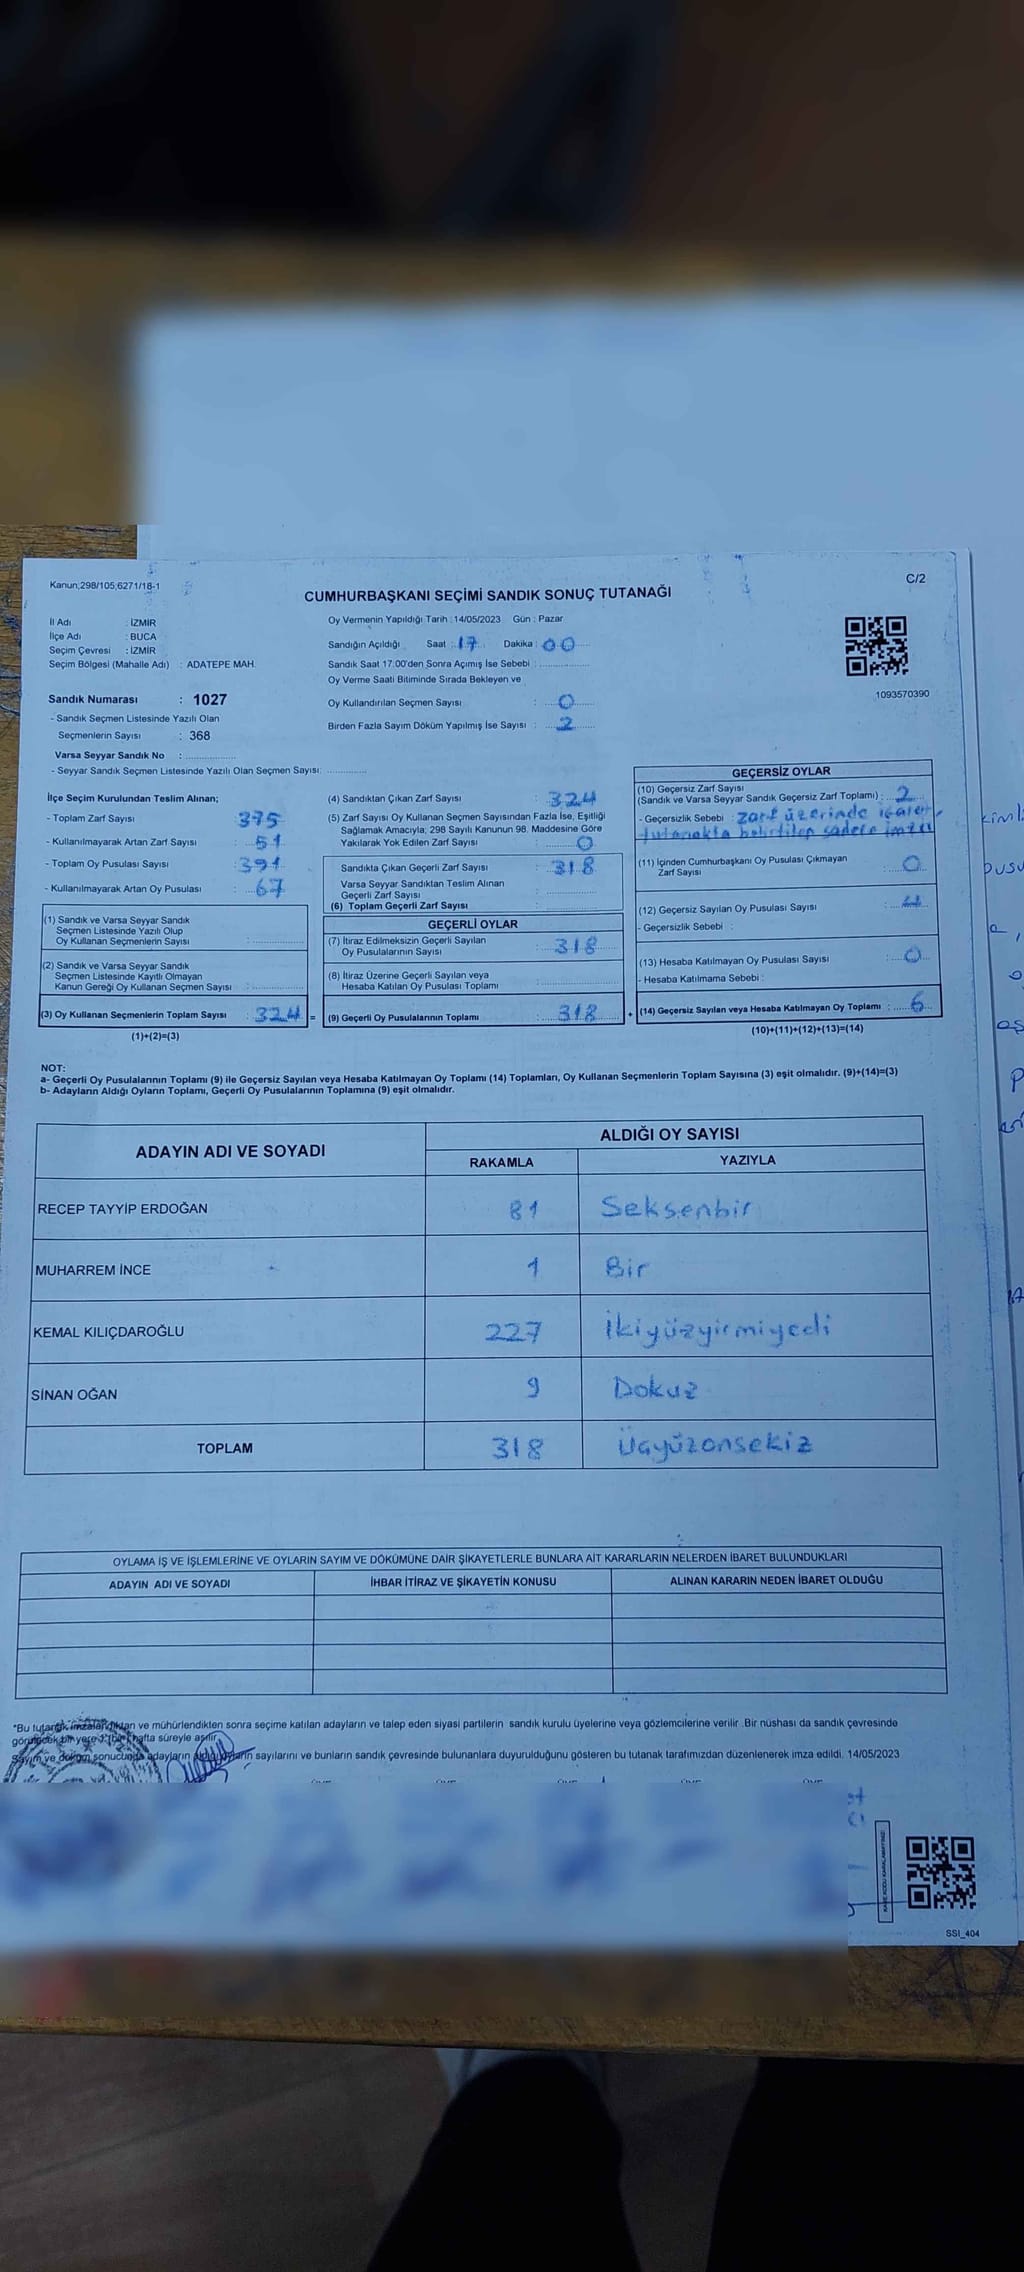 Kanun;298/105,6271/18-1
C/2
CUMHURBAŞKANI SEÇİMİ SANDIK SONUÇ TUTANAĞI
İl Adı : İZMİR
İlçe Adı : BUCA
Seçim Çevresi : İZMİR
Seçim Bölgesi (Mahalle Adı) : ADATEPE MAH.
Oy Vermenin Yapıldığı Tarih : 14/05/2023 Gün : Pazar
Sandığın Açıldığı Saat : 17 Dakika : 00
Sandık Saat 17:00'den Sonra Açımış İse Sebebi :
Oy Verme Saati Bitiminde Sırada Bekleyen ve
Oy Kullandırılan Seçmen Sayısı : 0
Birden Fazla Sayım Döküm Yapılmış İse Sayısı : 2
1093570390
Sandık Numarası : 1027
- Sandık Seçmen Listesinde Yazılı Olan
Seçmenlerin Sayısı : 368
Varsa Seyyar Sandık No :
- Seyyar Sandık Seçmen Listesinde Yazılı Olan Seçmen Sayısı:
İlçe Seçim Kurulundan Teslim Alınan;
- Toplam Zarf Sayısı : 375
- Kullanılmayarak Artan Zarf Sayısı : 51
- Toplam Oy Pusulası Sayısı : 391
- Kullanılmayarak Artan Oy Pusulası : 67
(1) Sandık ve Varsa Seyyar Sandık
Seçmen Listesinde Yazılı Olup
Oy Kullanan Seçmenlerin Sayısı :
(2) Sandık ve Varsa Seyyar Sandık
Seçmen Listesinde Kayıtlı Olmayan
Kanun Gereği Oy Kullanan Seçmen Sayısı :
(3) Oy Kullanan Seçmenlerin Toplam Sayısı : 324 =
(1)+(2)=(3)
(4) Sandıktan Çıkan Zarf Sayısı : 324
(5) Zarf Sayısı Oy Kullanan Seçmen Sayısından Fazla İse, Eşitliği
Sağlamak Amacıyla; 298 Sayılı Kanunun 98. Maddesine Göre
Yakılarak Yok Edilen Zarf Sayısı : 0
Sandıkta Çıkan Geçerli Zarf Sayısı : 318
Varsa Seyyar Sandıktan Teslim Alınan
Geçerli Zarf Sayısı :
(6) Toplam Geçerli Zarf Sayısı :
GEÇERLİ OYLAR
(7) İtiraz Edilmeksizin Geçerli Sayılan
Oy Pusulalarının Sayısı : 318
(8) İtiraz Üzerine Geçerli Sayılan veya
Hesaba Katılan Oy Pusulası Toplamı :
(9) Geçerli Oy Pusulalarının Toplamı : 318 +
GEÇERSİZ OYLAR
(10) Geçersiz Zarf Sayısı
(Sandık ve Varsa Seyyar Sandık Geçersiz Zarf Toplamı) : 2
- Geçersizlik Sebebi : Zarf üzerinde işaret,
tutanakta belirtilen sadece imza
(11) İçinden Cumhurbaşkanı Oy Pusulası Çıkmayan
Zarf Sayısı : 0
(12) Geçersiz Sayılan Oy Pusulası Sayısı : 4
- Geçersizlik Sebebi :
(13) Hesaba Katılmayan Oy Pusulası Sayısı : 0
- Hesaba Katılmama Sebebi :
(14) Geçersiz Sayılan veya Hesaba Katılmayan Oy Toplamı : 6
(10)+(11)+(12)+(13)=(14)
NOT:
a- Geçerli Oy Pusulalarının Toplamı (9) ile Geçersiz Sayılan veya Hesaba Katılmayan Oy Toplamı (14) Toplamları, Oy Kullanan Seçmenlerin Toplam Sayısına (3) eşit olmalıdır. (9)+(14)=(3)
b- Adayların Aldığı Oyların Toplamı, Geçerli Oy Pusulalarının Toplamına (9) eşit olmalıdır.
ADAYIN ADI VE SOYADI
ALDIĞI OY SAYISI
RAKAMLA YAZIYLA
RECEP TAYYİP ERDOĞAN 81 Seksenbir
MUHARREM İNCE 1 Bir
KEMAL KILIÇDAROĞLU 227 İkiyüzyirmiyedi
SİNAN OĞAN 9 Dokuz
TOPLAM 318 Üçyüzonsekiz
OYLAMA İŞ VE İŞLEMLERİNE VE OYLARIN SAYIM VE DÖKÜMÜNE DAİR ŞİKAYETLERLE BUNLARA AİT KARARLARIN NELERDEN İBARET BULUNDUKLARI
ADAYIN ADI VE SOYADI İHBAR İTİRAZ VE ŞİKAYETİN KONUSU ALINAN KARARIN NEDEN İBARET OLDUĞU
*Bu tutanak imzalandıktan ve mühürlendikten sonra seçime katılan adayların ve talep eden siyasi partilerin sandık kurulu üyelerine veya gözlemcilerine verilir. Bir nüshası da sandık çevresinde
görülecek bir yere 1 (bir) hafta süreyle asılır.
Sayım ve döküm sonucunda adayların aldığı oyların sayılarını ve bunların sandık çevresinde bulunanlara duyurulduğunu gösteren bu tutanak tarafımızdan düzenlenerek imza edildi. 14/05/2023
SSI_404